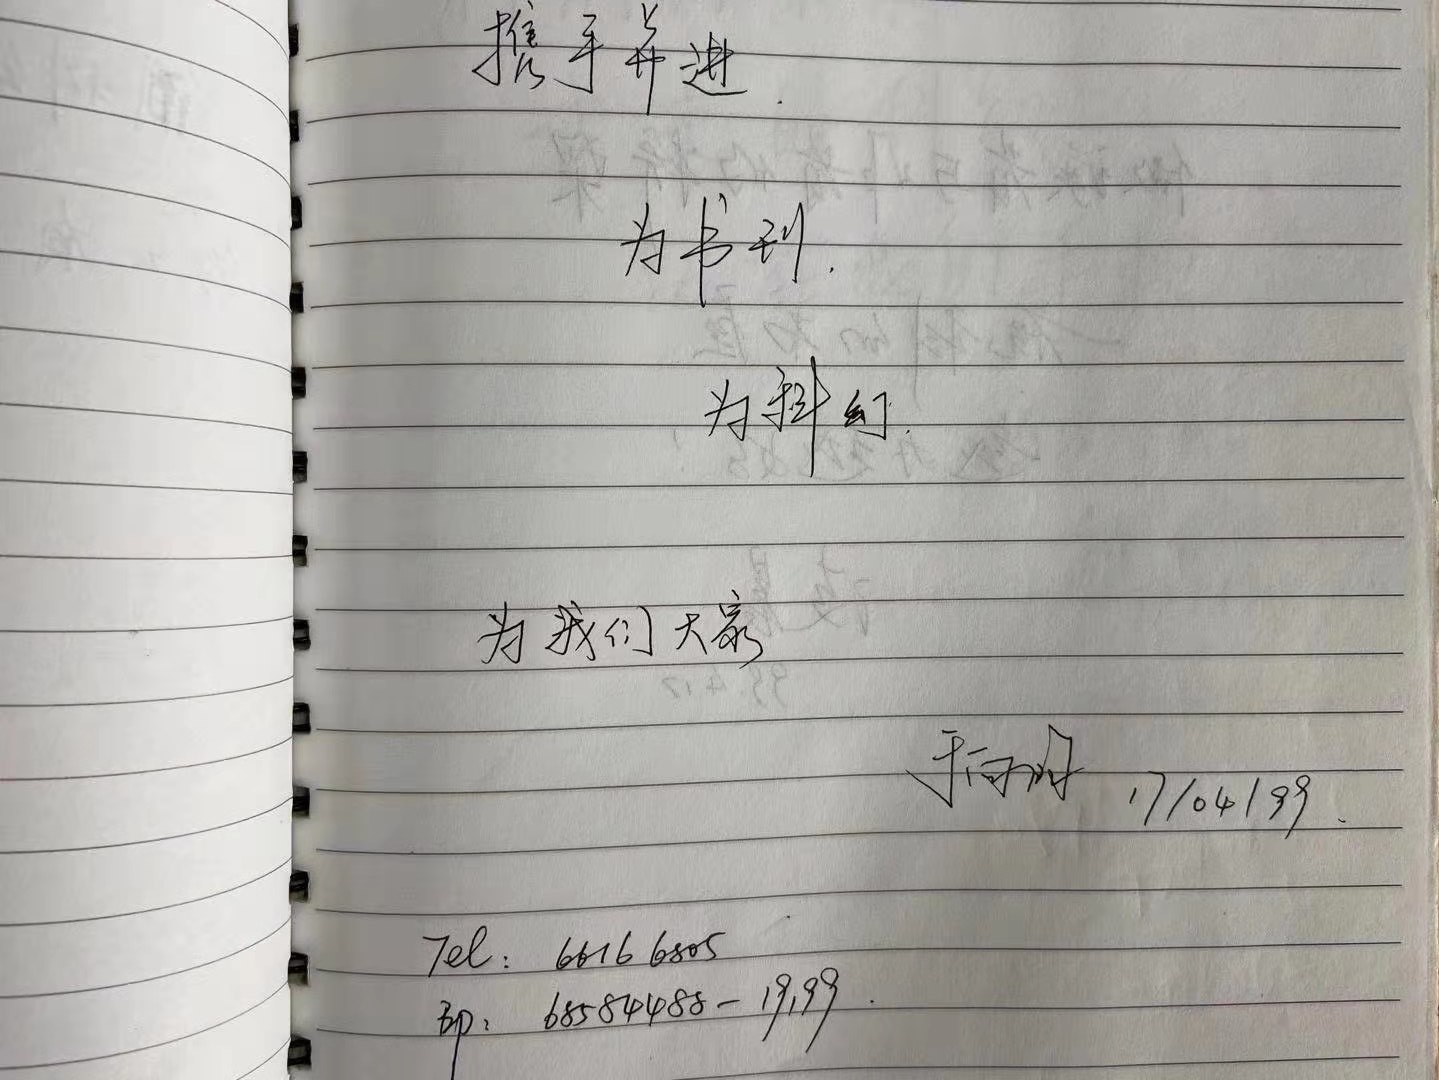 携手并进.
为书刊.
为科幻.
为我们大家
于向昀 17/04/99.
Tel: 66166805
Bp: 68584488-1999.